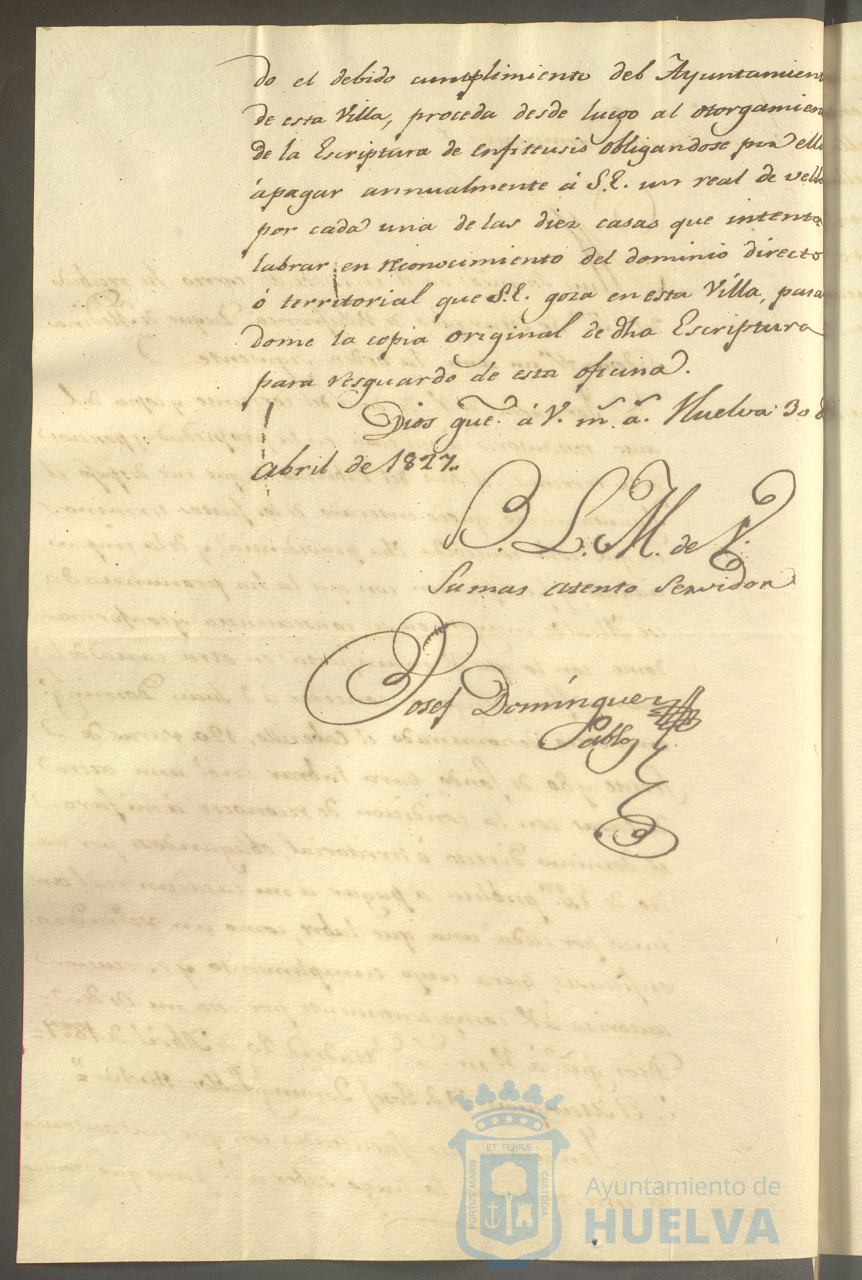 do el debido cumplimiento del Ayuntamien
de esta Villa, proceda desde luego al otorgamien
de la Escriptura de enfiteusis obligandose por ell
á pagar annualmente á S.E. un real de vell
por cada una de las diez casas que intenta
labrar en reconocimiento del dominio directo
ó territorial que S.E. goza en esta Villa, pasa
dome la copia original de dha Escriptura
para resguardo de esta oficina.
Dios gue. á V. ms. as. Huelva 30 d
Abril de 1827.
B. L. M. de V.
Su mas atento Servidor
Josef Domínguez
Pablo
ET TERRÆ
PORTUS MARIS
CUSTODIA
Ayuntamiento de
HUELVA